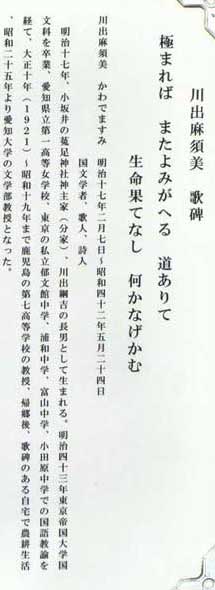 川出麻須美　歌碑
極まれば　またよみがへる　道ありて
生命果てなし　何かなげかむ
川出麻須美　かわでますみ　明治十七年二月七日～昭和四十二年五月二十四日
国文学者、歌人、詩人
明治十七年、小坂井の菟足神社神主家（分家）、川出綱吉の長男として生まれる。明治四十三年東京帝国大学国
文科を卒業、愛知県立第一高等女学校、東京の私立郁文館中学、浦和中学、富山中学、小田原中学での国語教諭を
経て、大正十年（１９２１）～昭和十九年まで鹿児島の第七高等学校の教授、帰郷後、歌碑のある自宅で農耕生活
、昭和二十五年より愛知大学の文学部教授となった。